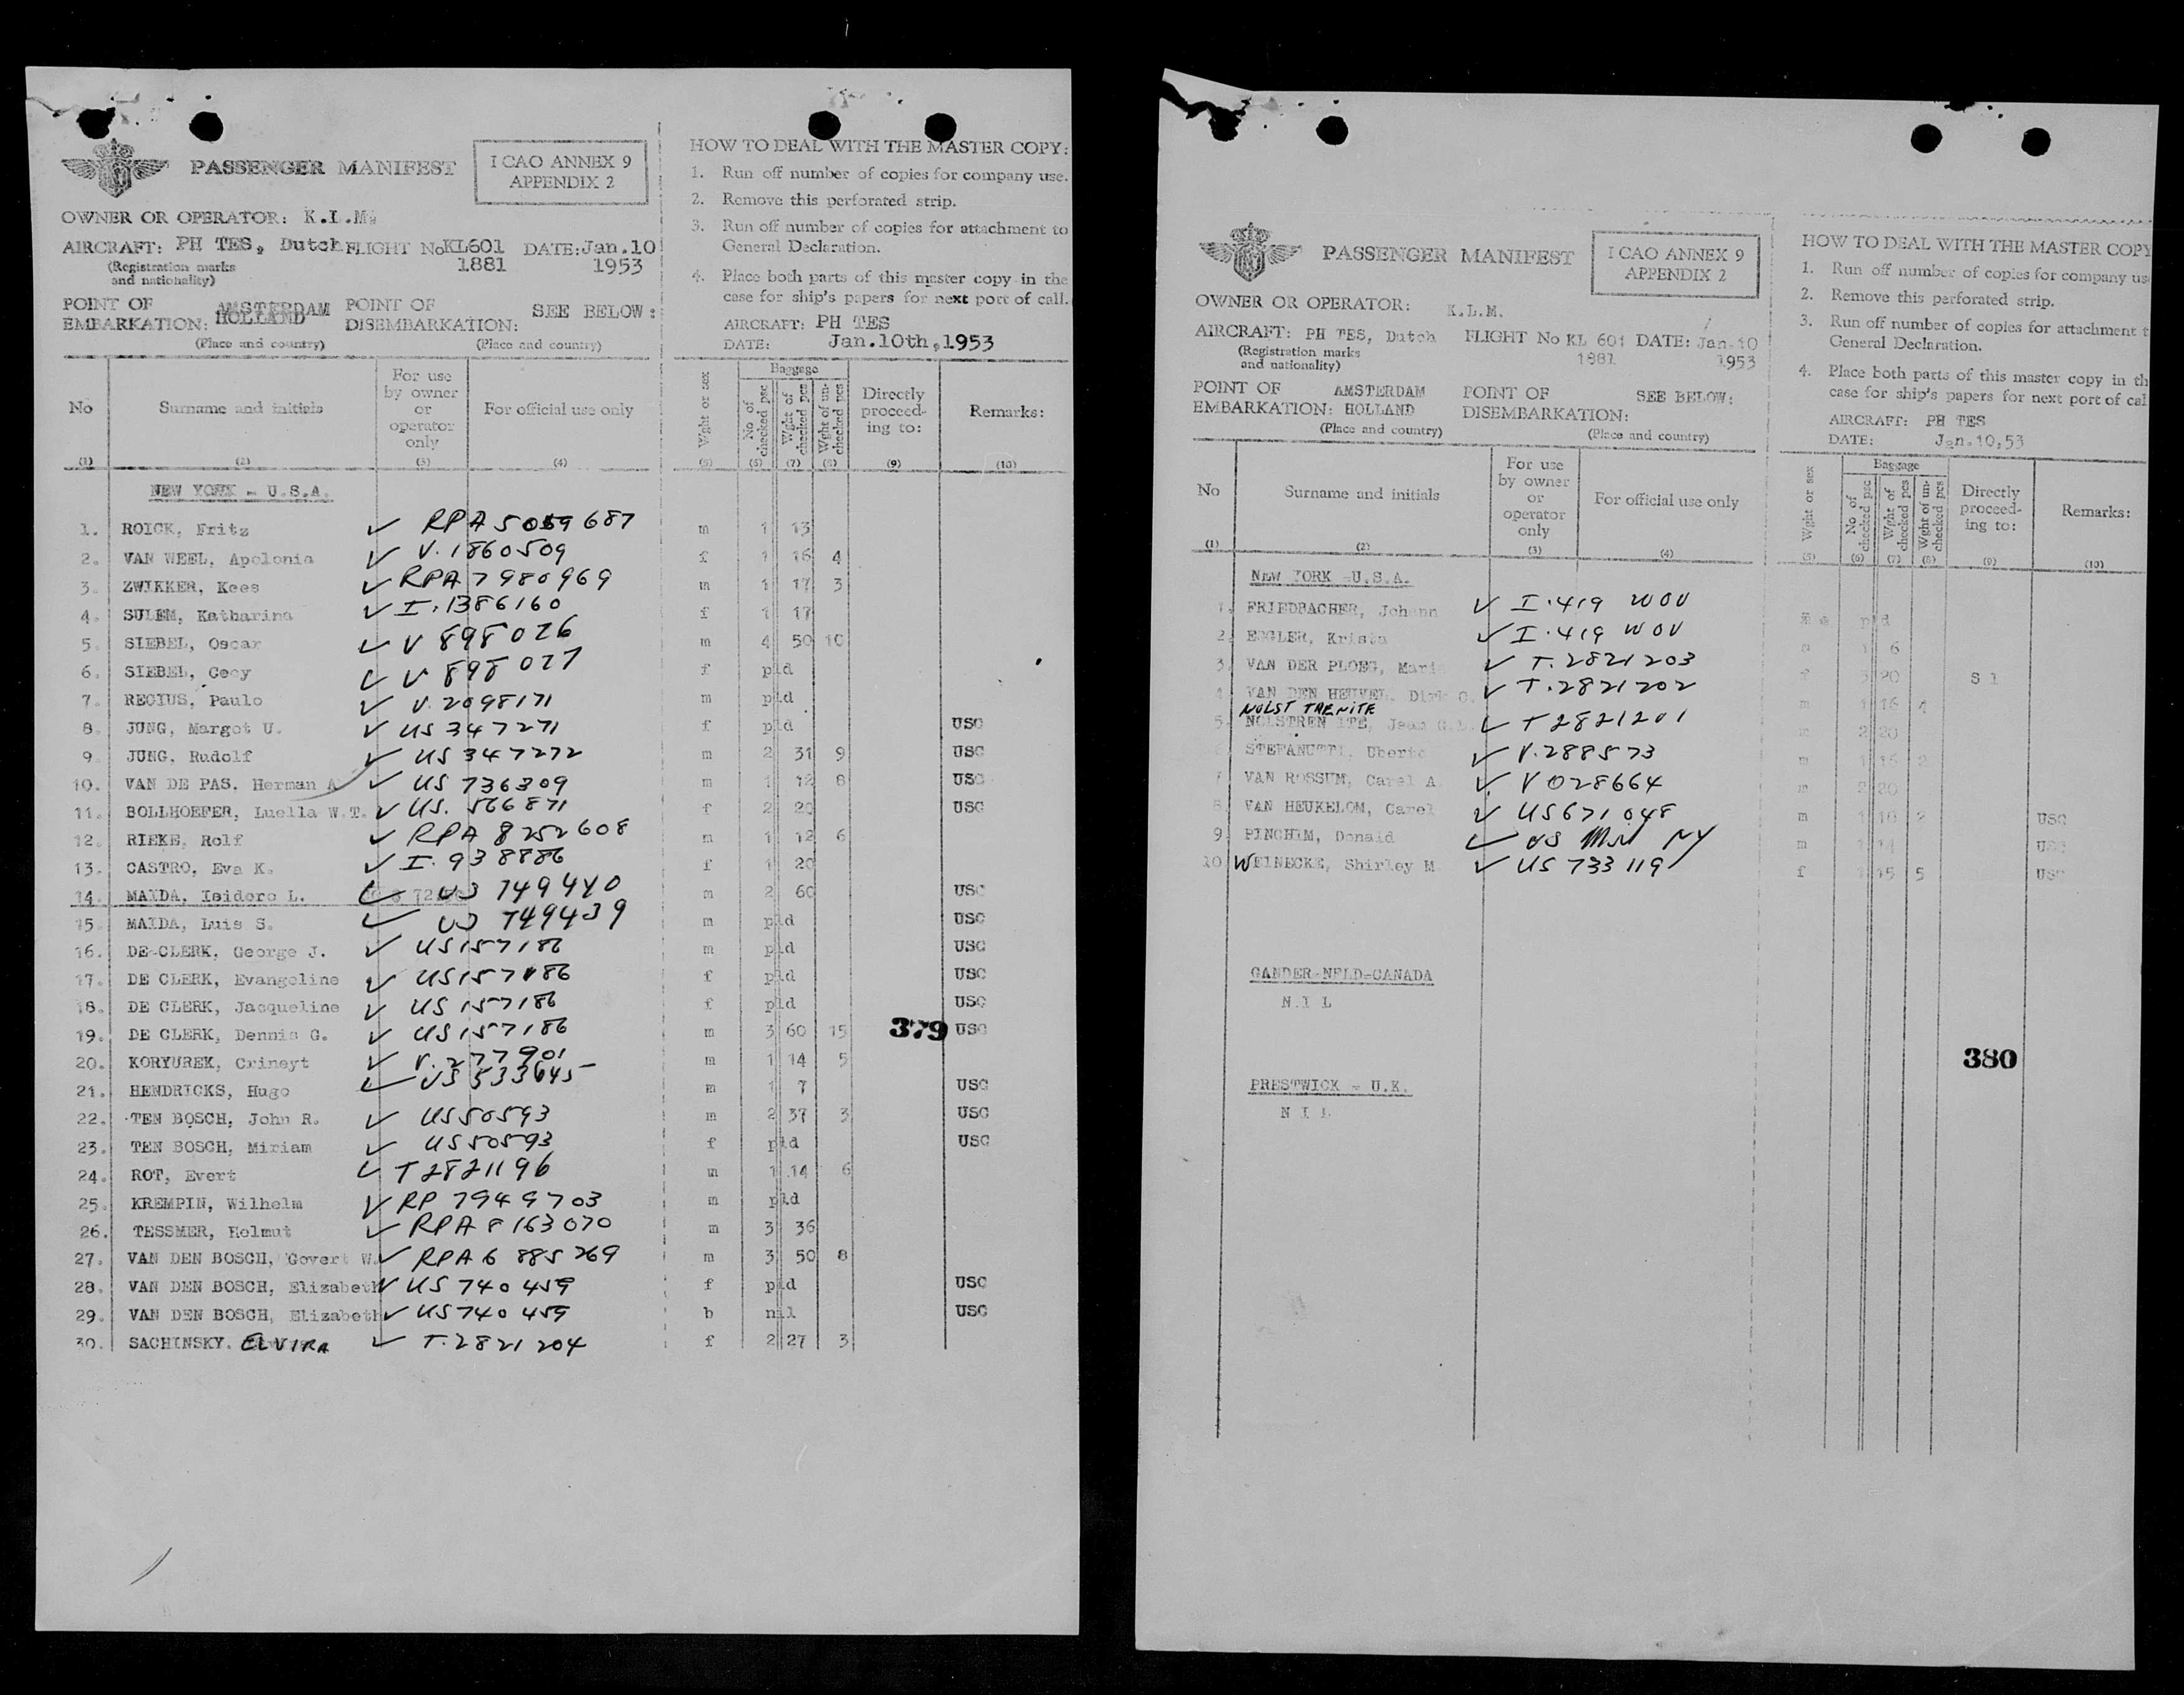 PASSENGER MANIFEST
I CAO ANNEX 9
APPENDIX 2
OWNER OR OPERATOR: K.L.M.
AIRCRAFT: PH TES, Dutch FLIGHT No KL601 DATE: Jan.10
(Registration marks and nationality) 1881 1953
POINT OF EMBARKATION: AMSTERDAM HOLLAND POINT OF DISEMBARKATION: SEE BELOW:
(Place and country) (Place and country)
HOW TO DEAL WITH THE MASTER COPY:
1. Run off number of copies for company use.
2. Remove this perforated strip.
3. Run off number of copies for attachment to
General Declaration.
4. Place both parts of this master copy in the
case for ship's papers for next port of call.
AIRCRAFT: PH TES
DATE: Jan.10th,1953
No Surname and initials For use by owner or operator only For official use only Wght or sex Baggage No of checked psc Wght of checked pcs Wght of un-checked pcs Directly proceed-ing to: Remarks:
(1) (2) (3) (4) (5) (6) (7) (8) (9) (10)
NEW YORK - U.S.A.
1. ROICK, Fritz ✓ RPA 5059687 m 1 13
2. VAN WEEL, Apolonia ✓ V.1860509 f 1 16 4
3. ZWIKKER, Kees ✓ RPA 7980969 m 1 17 3
4. SULEM, Katharina ✓ I.1386160 f 1 17
5. SIEBEL, Oscar ✓ V 898026 m 4 50 10
6. SIEBEL, Cecy ✓ V 898027 f pld
7. REGIUS, Paulo ✓ V.2098171 m pld
8. JUNG, Margot U. ✓ US 347271 f pld USC
9. JUNG, Rudolf ✓ US 347272 m 2 31 9 USC
10. VAN DE PAS, Herman A ✓ US 736309 m 1 12 8 USC
11. BOLLHOEFER, Luella W.T. ✓ US. 566871 f 2 20 USC
12. RIEKE, Rolf ✓ RPA 8252608 m 1 12 6
13. CASTRO, Eva K. ✓ I.938886 f 1 20
14. MAIDA, Isidoro L. ✓ US 749440 m 2 60 USC
15. MAIDA, Luis S. ✓ US 749439 m pld USC
16. DE CLERK, George J. ✓ US157186 m pld USC
17. DE CLERK, Evangeline ✓ US157186 f pld USC
18. DE CLERK, Jacqueline ✓ US 157186 f pld USC
19. DE CLERK, Dennis G. ✓ US157186 m 3 60 15 379 USC
20. KORYUREK, Crineyt ✓ V.277901 m 1 14 5
21. HENDRICKS, Hugo ✓ US 533645 m 1 7 USC
22. TEN BOSCH, John R. ✓ US50593 m 2 37 3 USC
23. TEN BOSCH, Miriam ✓ US50593 f pld USC
24. ROT, Evert ✓ T2821196 m 1 14 6
25. KREMPIN, Wilhelm ✓ RP 7949703 m pld
26. TESSMER, Helmut ✓ RPA 8163070 m 3 36
27. VAN DEN BOSCH, Govert W. ✓ RPA 6885269 m 3 50 8
28. VAN DEN BOSCH, Elizabeth ✓ US 740459 f pld USC
29. VAN DEN BOSCH, Elizabeth ✓ US740459 b nil USC
30. SACHINSKY. ELVIRA ✓ T.2821204 f 2 27 3
PASSENGER MANIFEST
I CAO ANNEX 9
APPENDIX 2
OWNER OR OPERATOR: K.L.M.
AIRCRAFT: PH TES, Dutch FLIGHT No KL 601 DATE: Jan.10
(Registration marks and nationality) 1881 1953
POINT OF EMBARKATION: AMSTERDAM HOLLAND POINT OF DISEMBARKATION: SEE BELOW:
(Place and country) (Place and country)
HOW TO DEAL WITH THE MASTER COPY
1. Run off number of copies for company us
2. Remove this perforated strip.
3. Run off number of copies for attachment t
General Declaration.
4. Place both parts of this master copy in th
case for ship's papers for next port of cal
AIRCRAFT: PH TES
DATE: Jan.10,53
No Surname and initials For use by owner or operator only For official use only Wght or sex Baggage No of checked psc Wght of checked pcs Wght of un-checked pcs Directly proceed-ing to: Remarks:
(1) (2) (3) (4) (5) (6) (7) (8) (9) (10)
NEW YORK -U.S.A.
1. FRIEDBACHER, Johann ✓ I.419 WOV pld
2. EGGLER, Krista ✓ I.419 WOV 1 6
3. VAN DER PLOEG, Mari ✓ T.2821203 f 20
4. VAN DEN HEUVEL. Dirk G. ✓ T.2821202 m 1 16 4
NOLST TRENITE
5. NOLSTREN ITE, Jean G. ✓ T2821201 m 2 20
STEFANUTTI. Uberto ✓ V.288573 m 1
7 VAN ROSSUM, Carel A. ✓ V028664 m 2 20
8. VAN HEUKELOM, Carel ✓ US671048 m 1 10 2 USC
9. PINCHIM, Donald ✓ US NY m 1 14 USC
10 WEINECKE, Shirley M. ✓ US 733119 f 1 15 5 USC
GANDER-NFLD-CANADA
N I L
380
PRESTWICK - U.K.
N I L